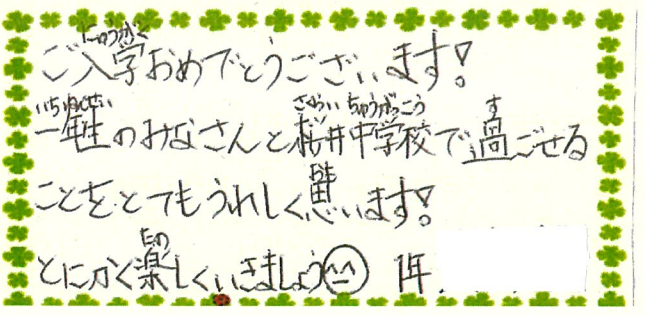 ご入学おめでとうございます!
一年生のみなさんと桜井中学校で過ごせる
ことをとてもうれしく思います!
とにかく楽しくいきましょう^^ 1年